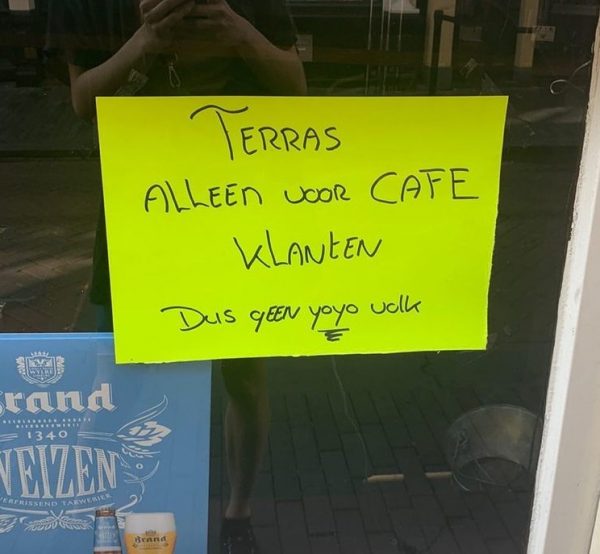 TERRAS
ALLEEN VOOR CAFE
KLANTEN
Dus GEEN yoyo volk
WYLRE
Brand
1340
WEIZEN
VERFRISSEND TARWEBIER
Brand